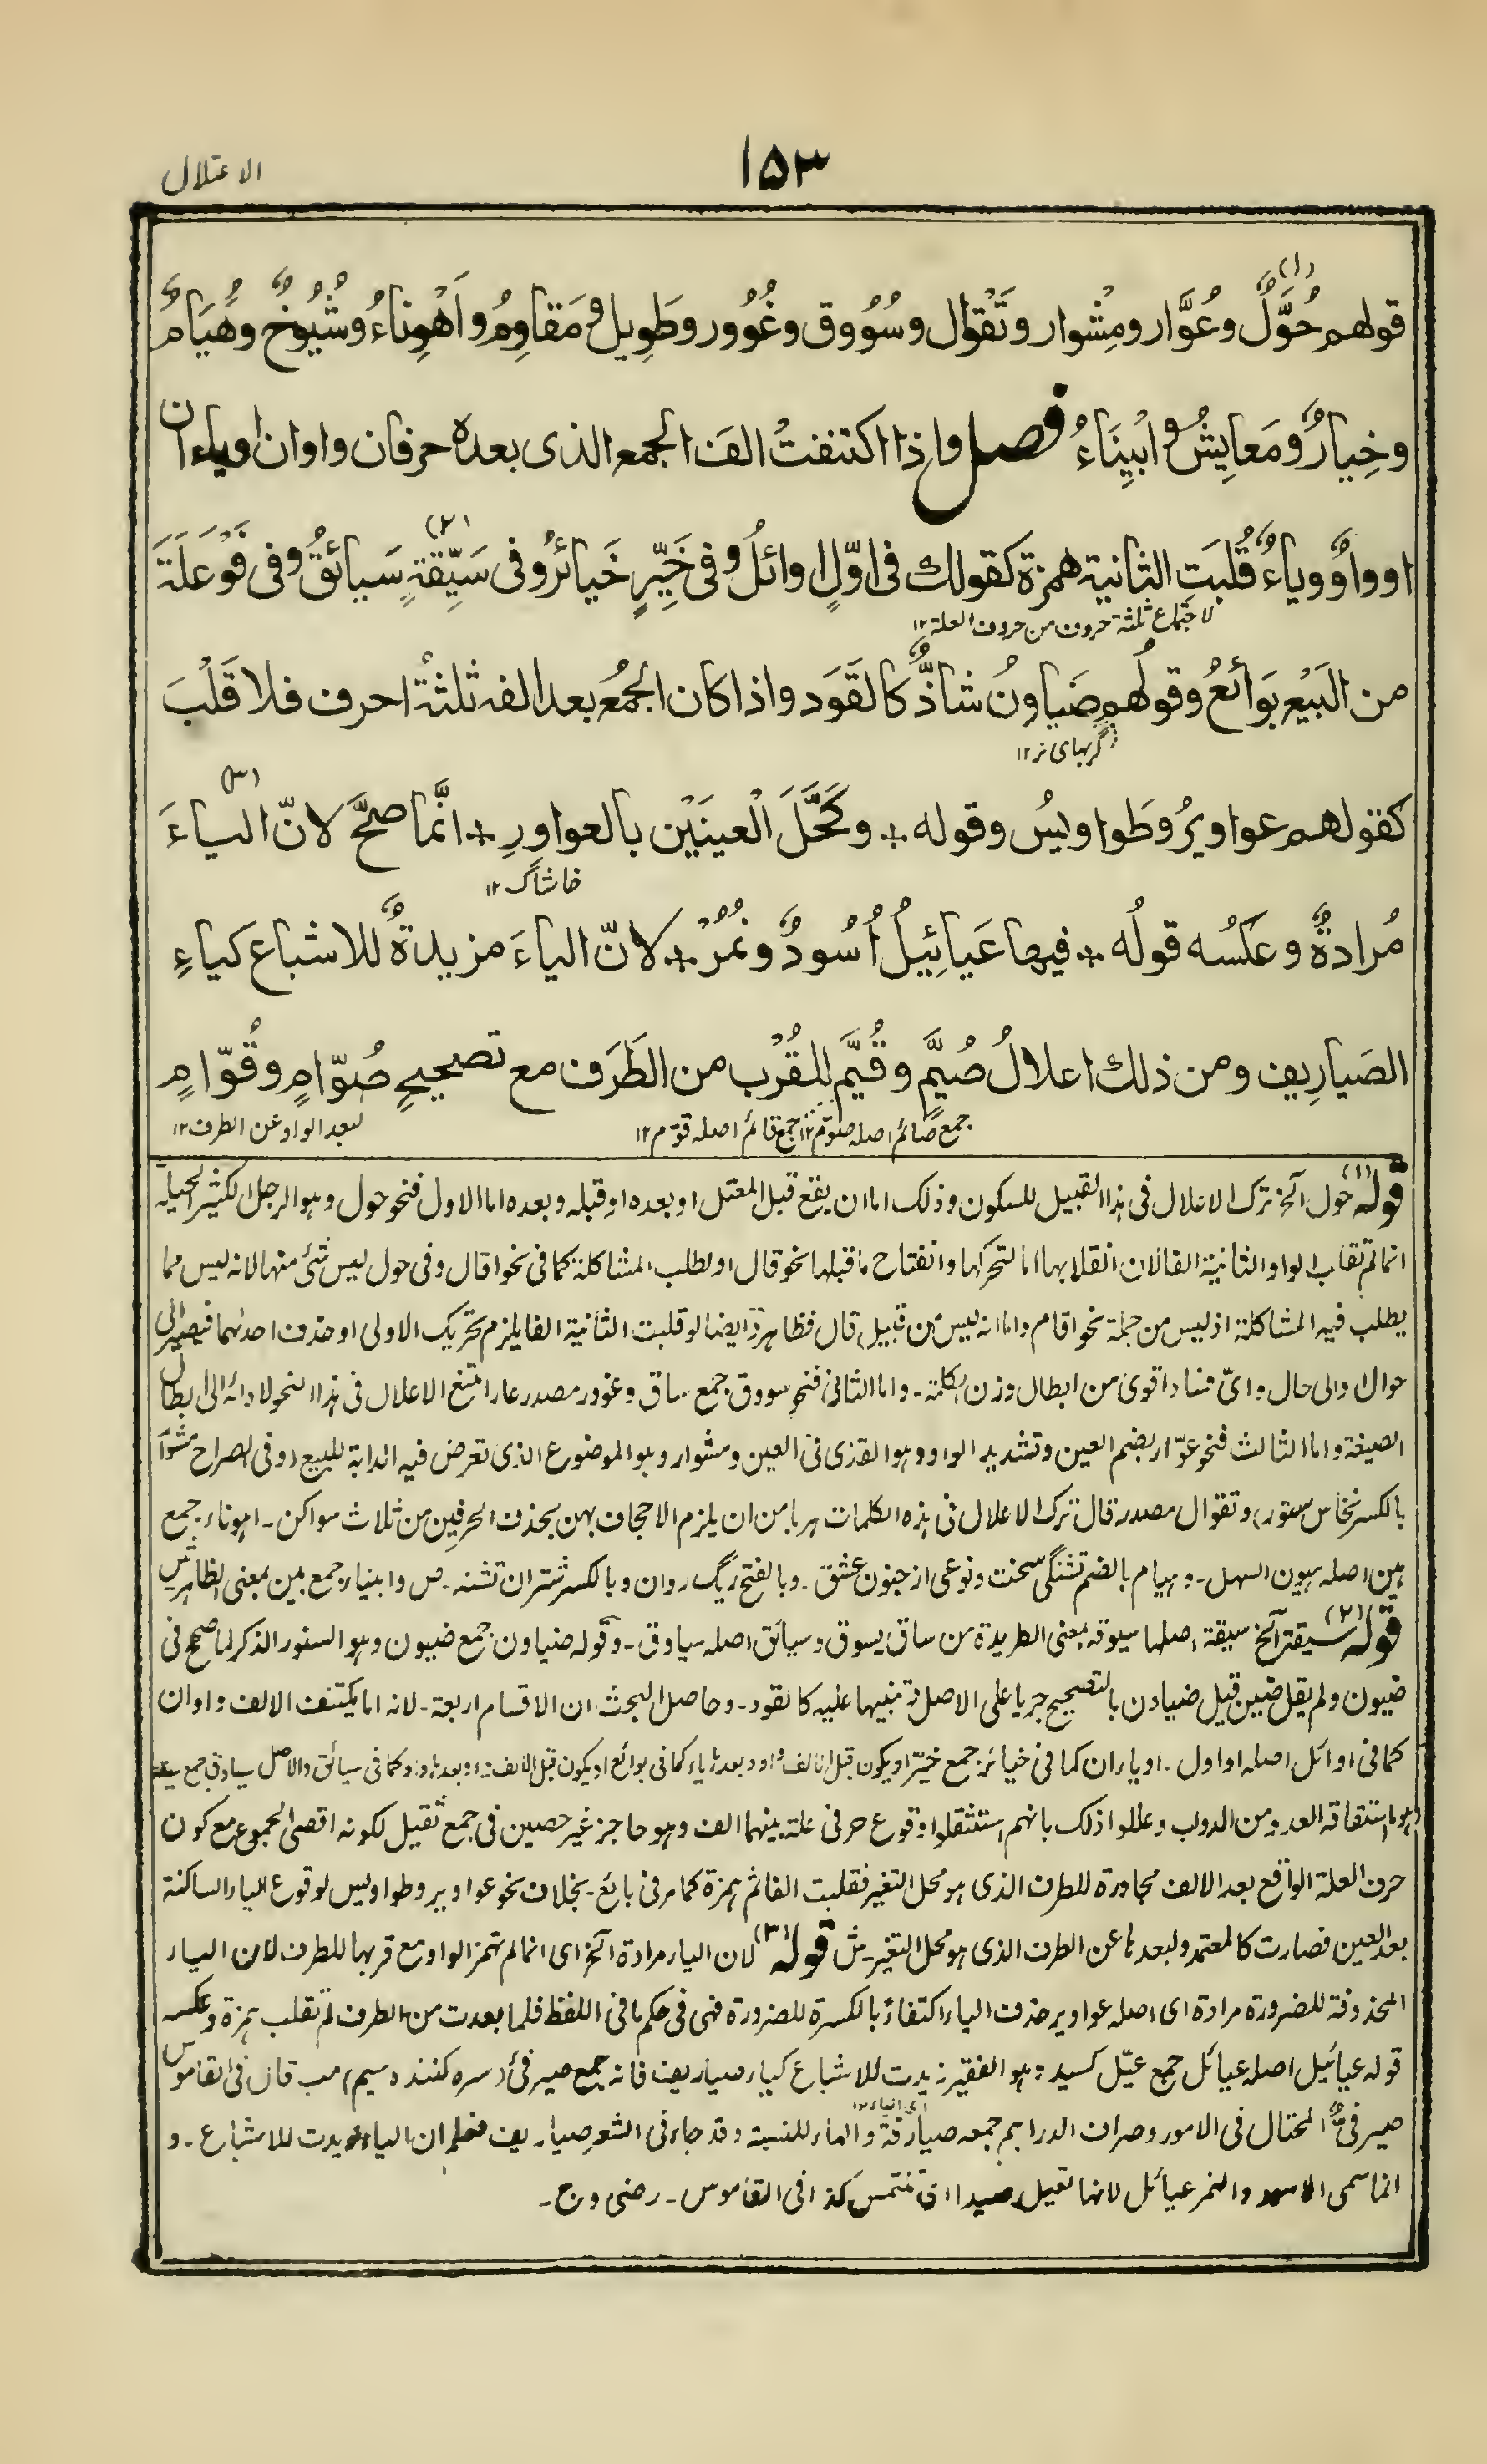 الاعتلال
١٥٣
(١)
قولهم حُوَّلٌ وعُوَّار ومِشْوار وتَقْوَال وسُوُوق وغُوُور وطَوِيل ومَقاوِمُ واَهْوِناءُ وشُيُوخٌ وهُيَامٌ
وخِيارٌ ومَعايِشُ واَبْيِنَاءُ فصل واذا اكتنفتْ الفَ الجمع الذى بعده حرفان واوان او ياءان
(٢)
او واوٌ وياءٌ قُلبَتِ الثانية همزة كقولك فى اوّلٍ اوائلُ وفى خَيِّرٍ خَيائرُ وفى سَيِّقةٍ سَيائقُ وفى فَوْعَلَةَ
لاجتماع ثلثة حروف من حروف العلة ١٢
من البَيْع بَوَائعُ وقولُهم ضَياوِنُ شاذٌّ كالقَوَد واذا كان الجمْعُ بعد الفه ثلثةُ احرف فلا قَلْبَ
گربہاى نر ١٢
(٣)
كقولهم عواويرُ وطَواويسُ وقوله ٭ وكَحَّلَ الْعينَيْن بالعواوِرِ ٭ انَّما صحَّ لانّ الياءَ
خاشاک ١٢
مُرادةٌ وعكسُه قولُه ٭ فيها عَيائِيلُ اُسُودٌ ونُمُرْ ٭ لانّ الياءَ مزيدةٌ للاشباع كياءِ
الصَيارِيف ومن ذلك اعلالُ صُيَّمٍ وقُيَّمٍ للقُرْب من الطَرَف مع تصحيحِ صُوّامٍ وقُوّامٍ
جمع صائم اصله صوّم ١٢ جمع قائم اصله قوّم ١٢ لبعد الواو عن الطرف ١٢
قوله (١) حول الخ ترك الاعلال فى هذا القبيل للسكون وذلك اما ان يقع قبل المعتل او بعده او قبله وبعده اما الاول فنحو حول وهو الرجل الكثير الحيلة
انما لم تقلب الواو الثانية الفا لان انقلابها اما لتحركها وانفتاح ماقبلها نحو قال او لطلب المشاكلة كما فى نحو اقال وفى حول ليس شئ منها لانه ليس مما
يطلب فيه المشاكلة اذ ليس من جملة نحو اقام واما انه ليس من قبيل قال فظاهر وايضا لو قلبت الثانية الفا يلزم تحريك الاولى او حذف احدهما فيصير الى
حوال او الى حال واىّ فساد اقوى من ابطال وزن الكلمة ـ واما الثانى فنحو سووق جمع ساق وغوور مصدر غار امتنع الاعلال فى هذا النحو لادائه الى ابطال
الصيغة واما الثالث فنحو عوّار بضم العين وتشديد الواو وهو القذى فى العين ومشوار وهو الموضوع الذى تعرض فيه الدابة للبيع (وفى الصراح مشوار
بالكسر نخاس ستور) وتقوال مصدر قال ترك الاعلال فى هذه الكلمات هربا من ان يلزم الاجحاف بهن بحذف الحرفين من ثلاث سواكن ـ اهوناء جمع
هين اصله هيون السهل ـ وهيام بالضم تشنگى سخت ونوعى از جنون عشق ـ وبالفتح ريگ روان وبالكسر شتران تشنه ـ ص وابيناء جمع بين بمعنى الظاهر ش
قوله (٢) سيقة الخ سيقة اصلها سيوقة بمعنى الطريدة من ساق يسوق وسيائق اصله سياوق ـ وقوله ضياون جمع ضيون وهو السنور الذكر لما صح فى
ضيون ولم يقل ضين قيل ضياون بالتصحيح جريا على الاصل و تنبيها عليه كالقود ـ وحاصل البحث ان الاقسام اربعة ـ لانه اما يكتنف الالف واوان
كما فى اوائل اصله اواول ـ او ياءان كما فى خيائر جمع خيّر او يكون قبل الالف واو وبعدها ياء كما فى بوائع او يكون قبل الالف ياء وبعدها واو كما فى سيائق والاصل سياوق جمع سيقة
وهو ما استقاقه العدو من الدواب وعللوا ذلك بانهم استثقلوا وقوع حرفى علة بينهما الف وهو حاجز غير حصين فى جمع ثقيل لكونه اقصى الجموع مع كون
حرف العلة الواقع بعد الالف مجاورة للطرف الذى هو محل التغير فقلبت الفا ثم همزة كما مر فى بائع ـ بخلاف نحو عواوير وطواويس لوقوع الياء الساكنة
بعد العين فصارت كالمعتمد ولبعدها عن الطرف الذى هو محل التغير ـ ش قوله (٣) لان الياء مرادة الخ اى انما لم تهمز الواو مع قربها للطرف لان الياء
المحذوفة للضرورة مرادة اى اصله عواوير حذف الياء اكتفاءً بالكسرة للضرورة فهى فى حكم ما فى اللفظ فلما بعدت من الطرف لم تقلب همزة وعكسه
قوله عيائيل اصله عيائل جمع عيّل كسيد وهو الفقير زيدت للاشباع كياء صياريف فانه جمع صيرفى (سره كننده سيم) مب قال فى القاموس
اى الهاء ١٢
صيرفىٌّ المحتال فى الامور وصراف الدراهم جمعه صيارفة والهاء للنسبة وقد جاء فى الشعر صياريف فعلم ان الياء زيدت للاشباع ـ و
انما سمى الاسد والنمر عيائل لانها تعيل صيدا اى تلتمس كذا فى القاموس ـ رضى وج ـ